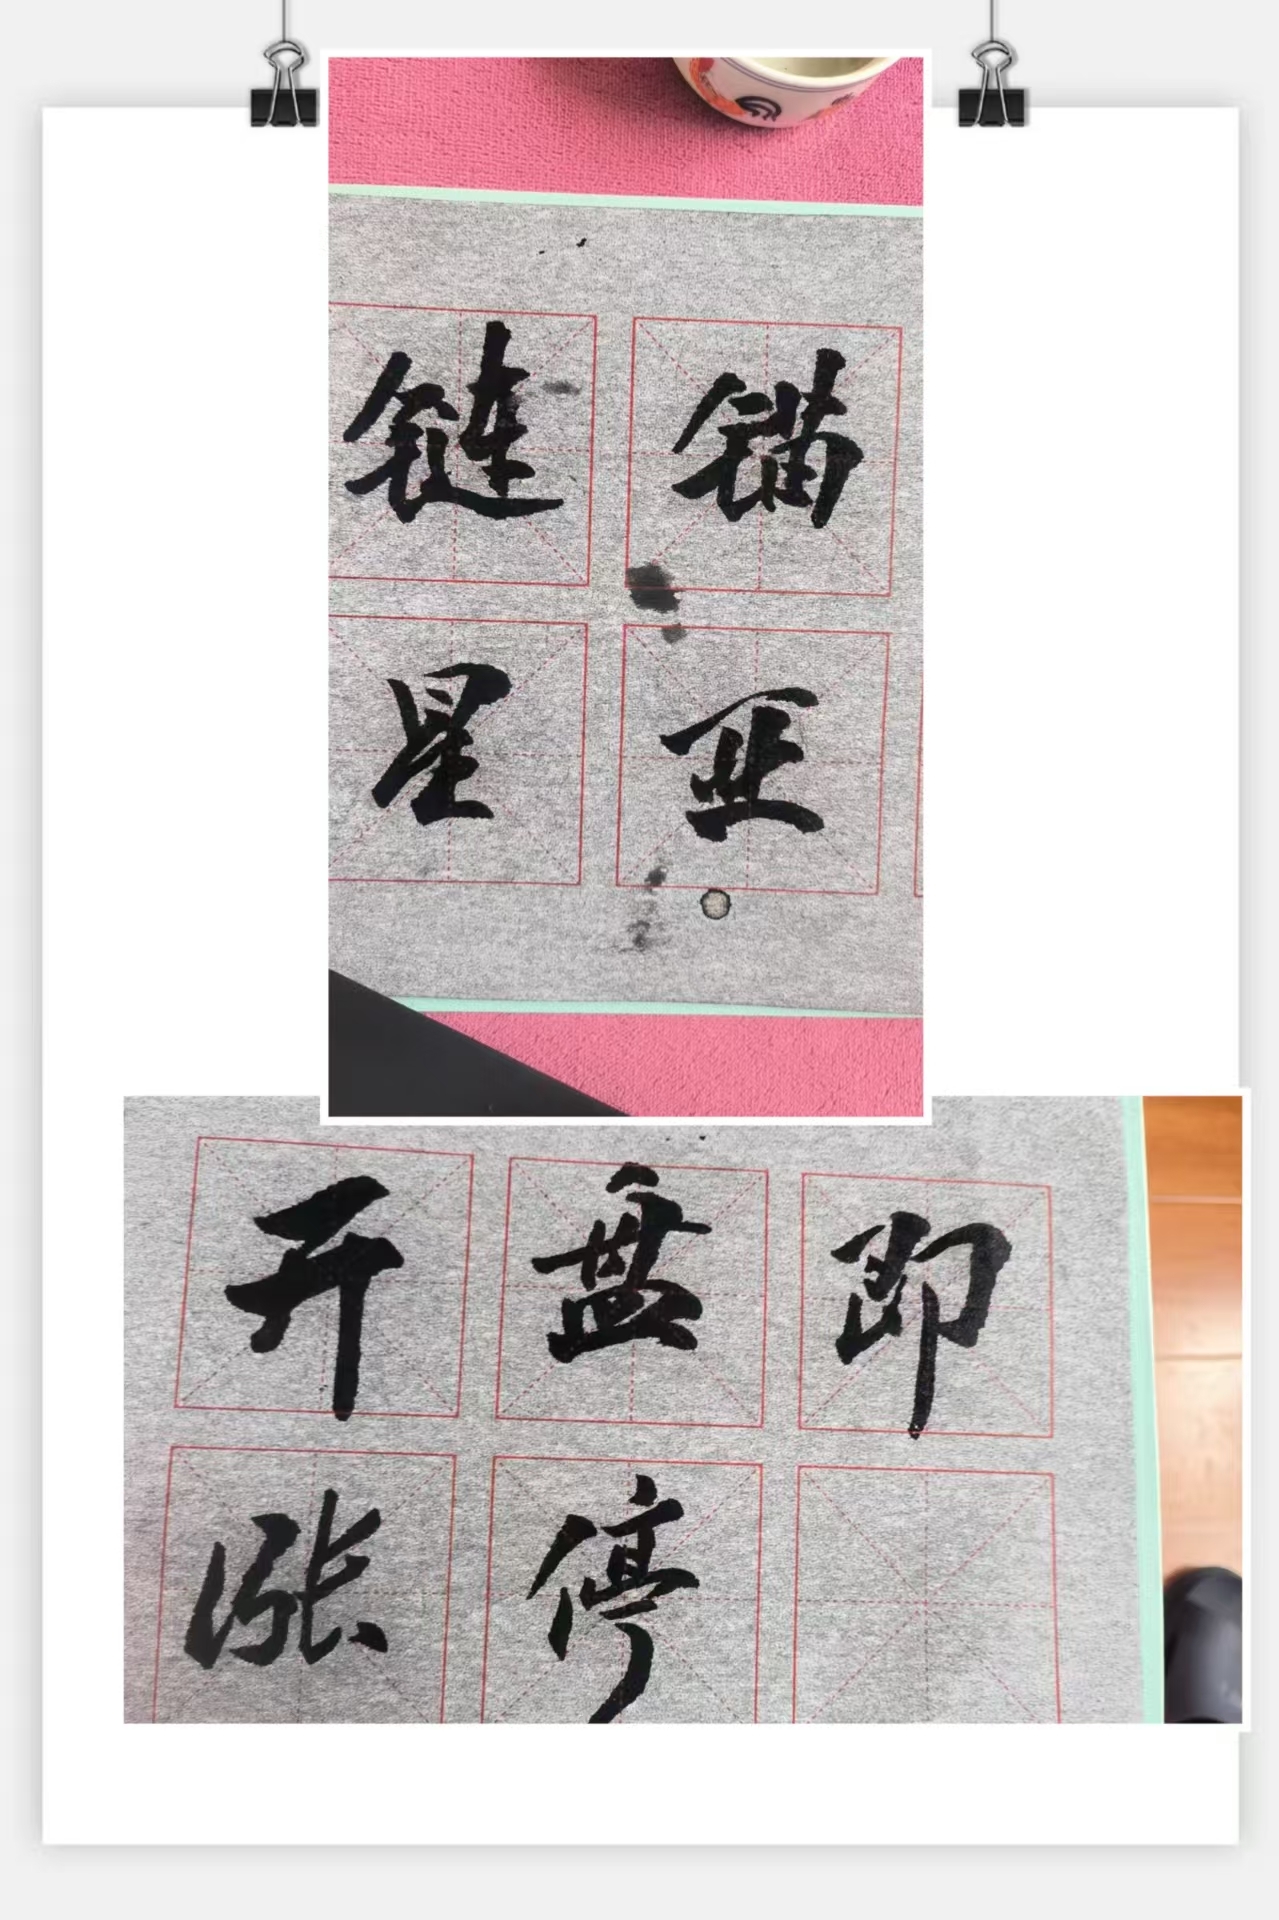 链锚
星亚
开盘即
涨停